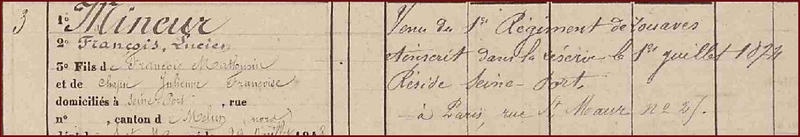 3
1º Mineur
2º François, Lucien
3º Fils de François Mathurin
et de Cheju Julienne Françoise
domiciliés à Seine-Port, rue
nº , canton de Melun (nord)
Venu du 1er Régiment de zouaves
inscrit dans la réserve le 1er juillet 1874
Réside Seine-Port.
à Paris, rue St Maur nº 25.